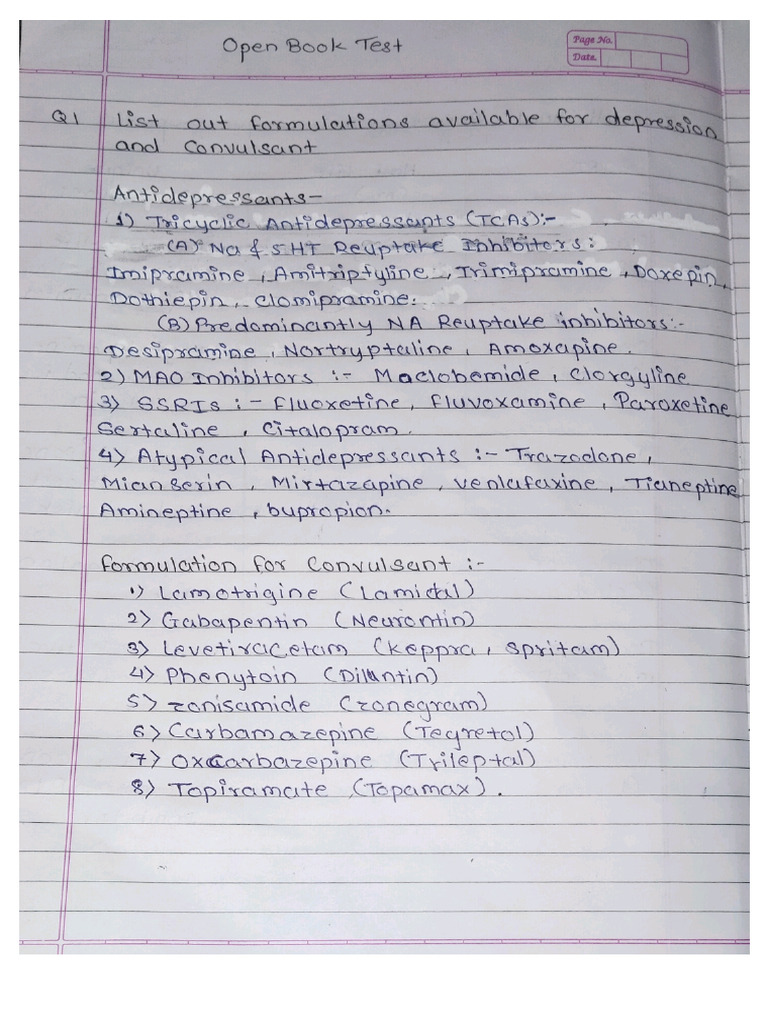 Open Book Test
Page No.
Date.
Q1 List out formulations available for depression
and Convulsant
Antidepressants-
1) Tricyclic Antidepressants (TCAs):-
(A) Na & 5HT Reuptake Inhibitors:
Imipramine, Amitriptyline, Trimipramine, Doxepin,
Dothiepin, Clomipramine.
(B) Predominantly NA Reuptake inhibitors:-
Desipramine, Nortryptaline, Amoxapine.
2) MAO Inhibitors :- Maclobemide, Clorgyline
3) SSRIs :- Fluoxetine, Fluvoxamine, Paroxetine
Sertaline, Citalopram.
4) Atypical Antidepressants :- Trazodone,
Mianserin, Mirtazapine, Venlafaxine, Tianeptine
Amineptine, bupropion.
Formulation for Convulsant :-
1) Lamotrigine (Lamictal)
2) Gabapentin (Neurontin)
3) Levetiracetam (Keppra, Spritam)
4) Phenytoin (Dilantin)
5) Zonisamide (Zonegram)
6) Carbamazepine (Tegretol)
7) Oxcarbazepine (Trileptal)
8) Topiramate (Topamax).